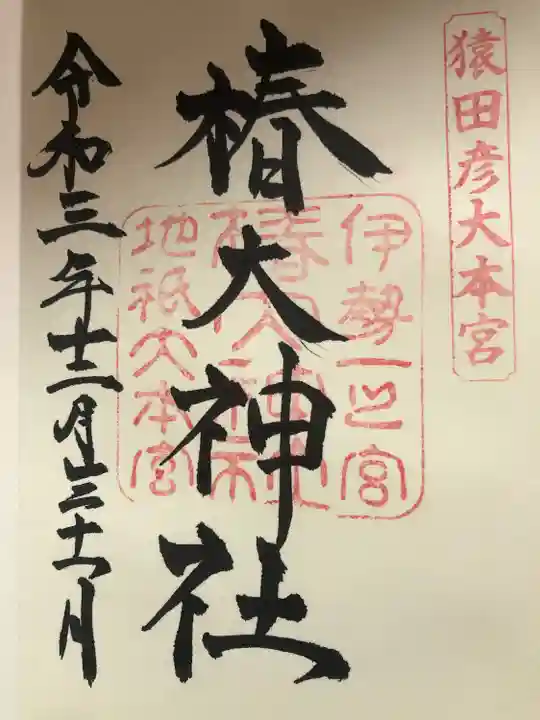 猿田彦大本宮
椿大神社
伊勢一之宮
椿大神社
地祇大本宮
令和三年十二月三十一日